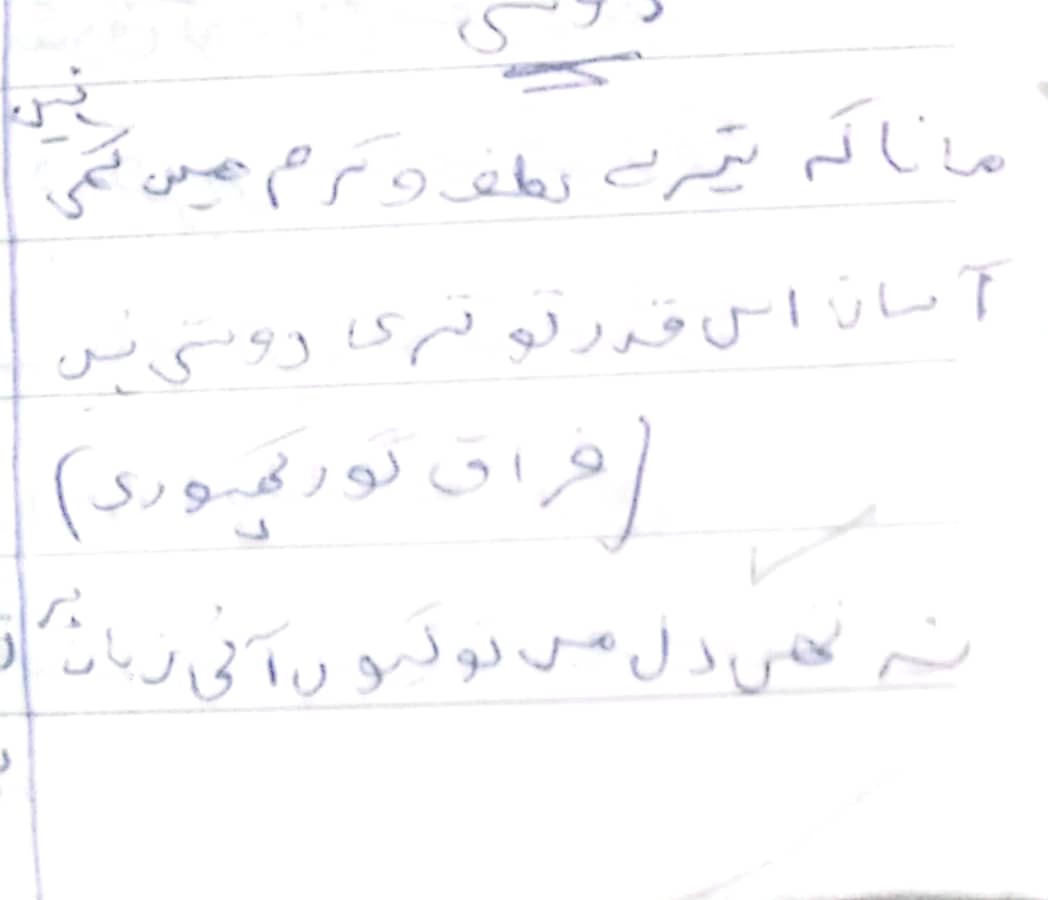 دوستی
مانا کہ تیرے لطف و کرم میں کمی نہیں
آسان اس قدر تو تری دوستی نہیں
(فراق گورکھپوری)
نہ تھیں دل میں تو کیوں آئی زباں پر